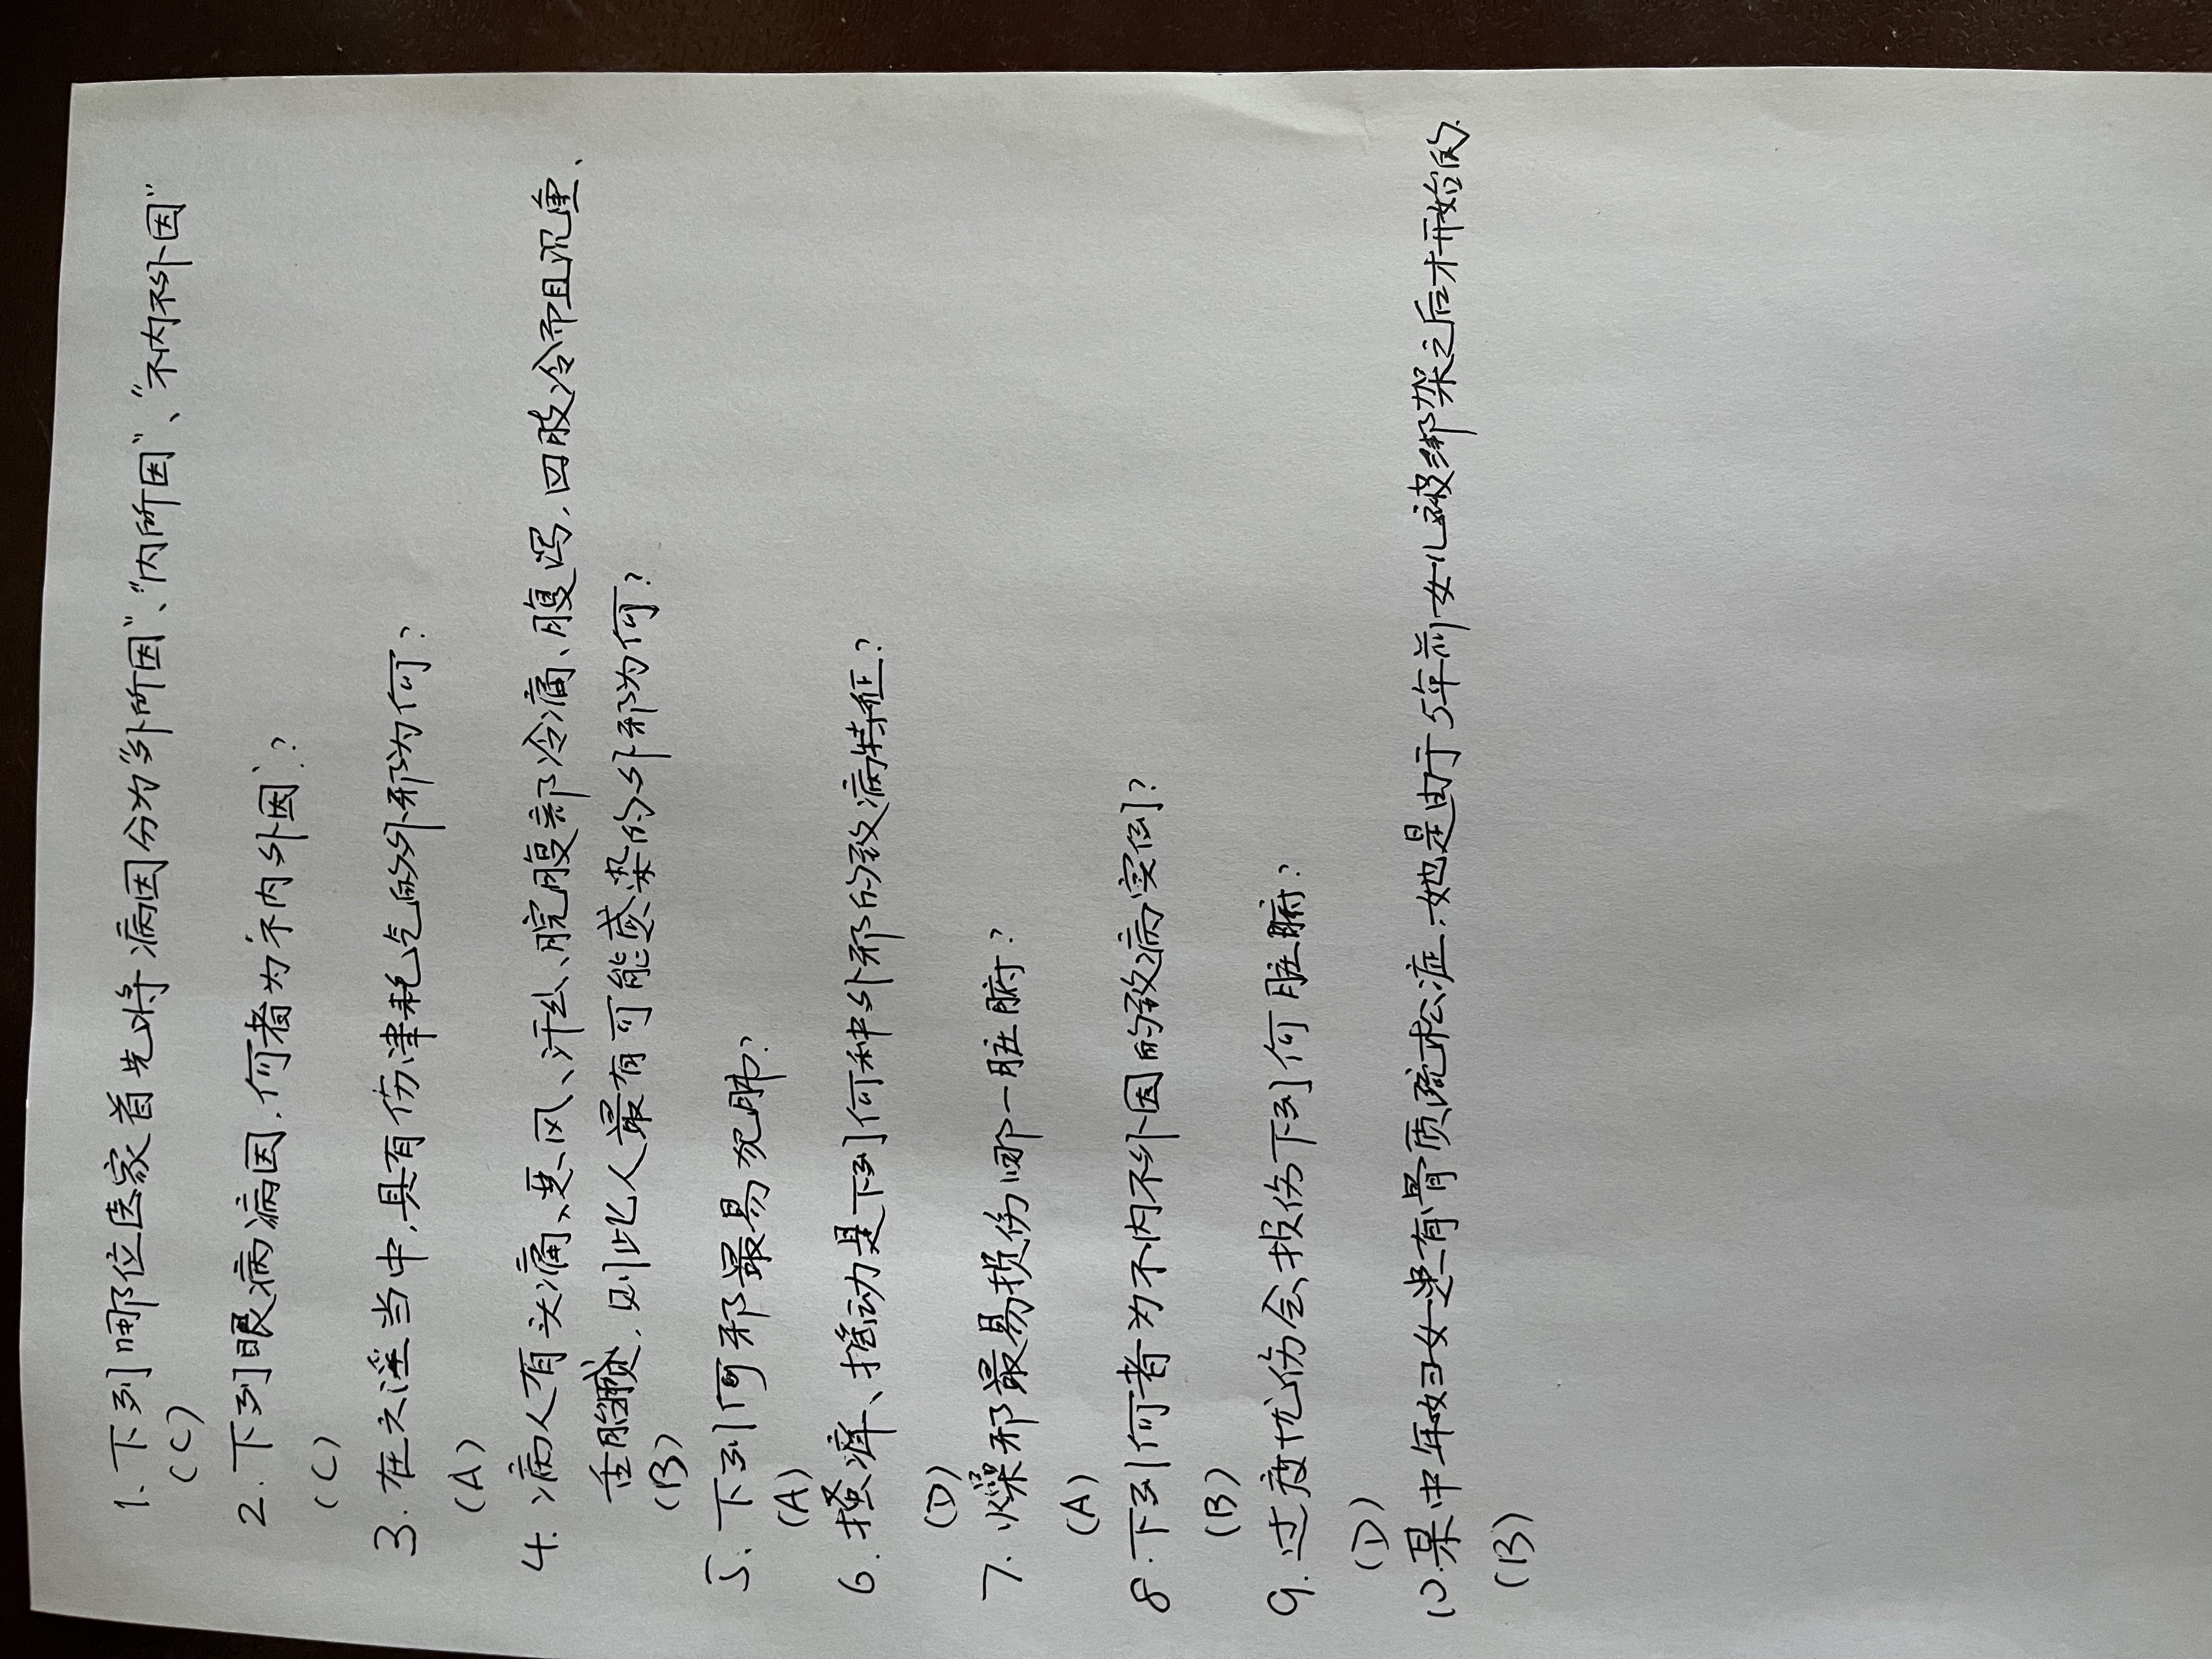 1. 下列哪位医家首先将病因分为“外所因”、“内所因”、“不内不外因”
(C)
2. 下列眼病病因，何者为“不内外因”？
(C)
3. 在六淫当中，具有伤津耗气的外邪为何？
(A)
4. 病人有头痛、恶风、汗出、脘腹部冷痛、腹泻，四肢冷而且沉重、
舌脂腻，则此人最有可能感染的外邪为何？
(B)
5. 下列何邪最易犯肺？
(A)
6. 搔痒、摇动是下列何种外邪的致病特征？
(D)
7. 燥邪最易损伤哪一脏腑？
(A)
8. 下列何者为不内不外因的致病实例？
(B)
9. 过度忧伤会损伤下列何脏腑？
(D)
10. 某中年妇女患有骨质疏松症，她是由于5年前女儿被绑架之后才开始的.
(B)